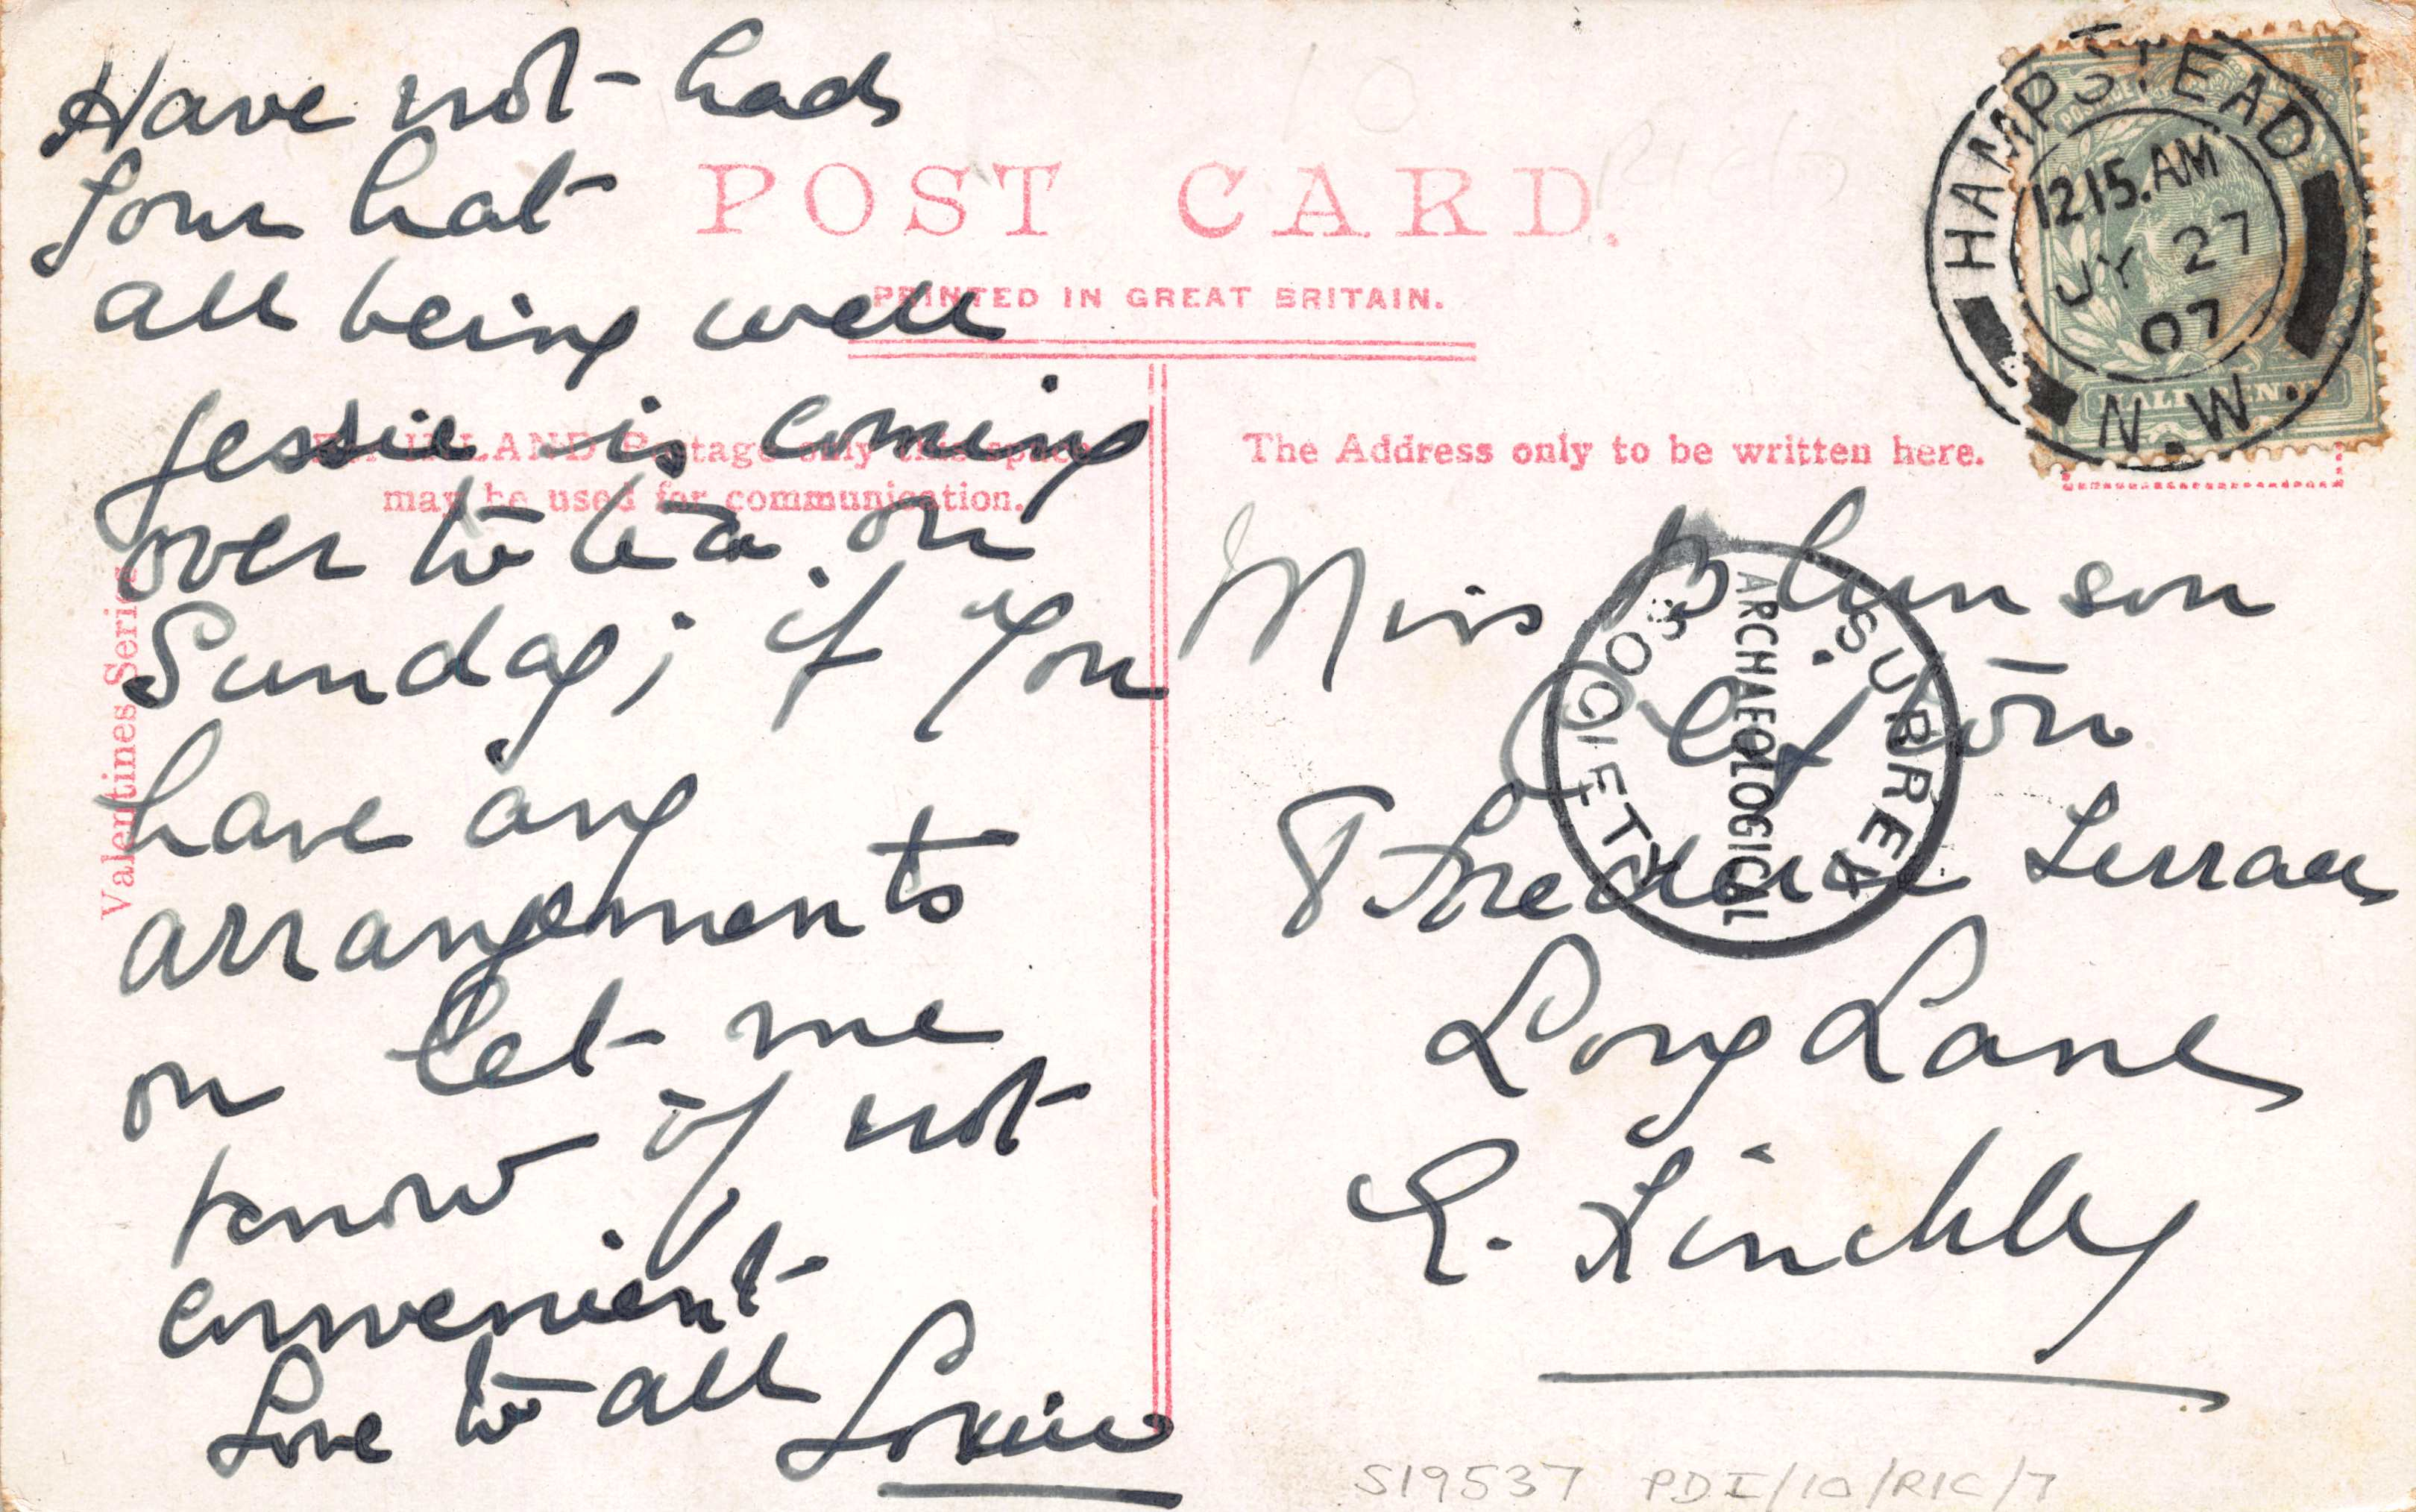 Have not had
your hat
all being well
Jessie is coming
over to tea on
Sunday; if you
have any
arrangements
on let me
know if not
convenient
Love to all
POST CARD.
PRINTED IN GREAT BRITAIN.
For INLAND Postage only this space
may be used for communication.
The Address only to be written here.
Valentines Series
HAMPSTEAD
12 15.AM
JY 27
07
N.W.
HALFPENNY
Miss
8 Frederick Terrace
Long Lane
E. Finchley
SURREY
ARCHAEOLOGICAL
SOCIETY
S19537 PDI/10/RIC/7